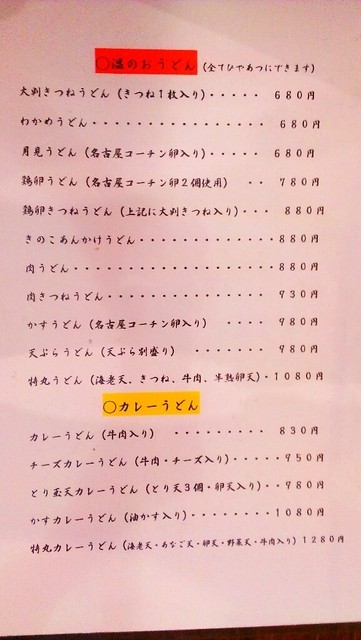 ○温のおうどん(全てひやあつにできます)
大判きつねうどん(きつね1枚入り)・・・・・ 680円
わかめうどん・・・・・・・・・・・・・・・ 680円
月見うどん(名古屋コーチン卵入り)・・・・・ 680円
鶏卵うどん(名古屋コーチン卵2個使用) ・・ 780円
鶏卵きつねうどん(上記に大判きつね入り)・・・ 880円
きのこあんかけうどん・・・・・・・・・・・・880円
肉うどん・・・・・・・・・・・・・・・・・・880円
肉きつねうどん・・・・・・・・・・・・・・ 930円
かすうどん(名古屋コーチン卵入り) ・・・・ 980円
天ぷらうどん(天ぷら別盛り) ・・・・・・・ 980円
特丸うどん(海老天、きつね、牛肉、半熟卵天)・1080円
○カレーうどん
カレーうどん(牛肉入り) ・・・・・・・・・ 830円
チーズカレーうどん(牛肉・チーズ入り)・・・・・950円
とり玉天カレーうどん(とり天3個・卵天入り)・・980円
かすカレーうどん(油かす入り)・・・・・・・・1080円
特丸カレーうどん(海老天・あなご天・卵天・野菜天・牛肉入り)1280円